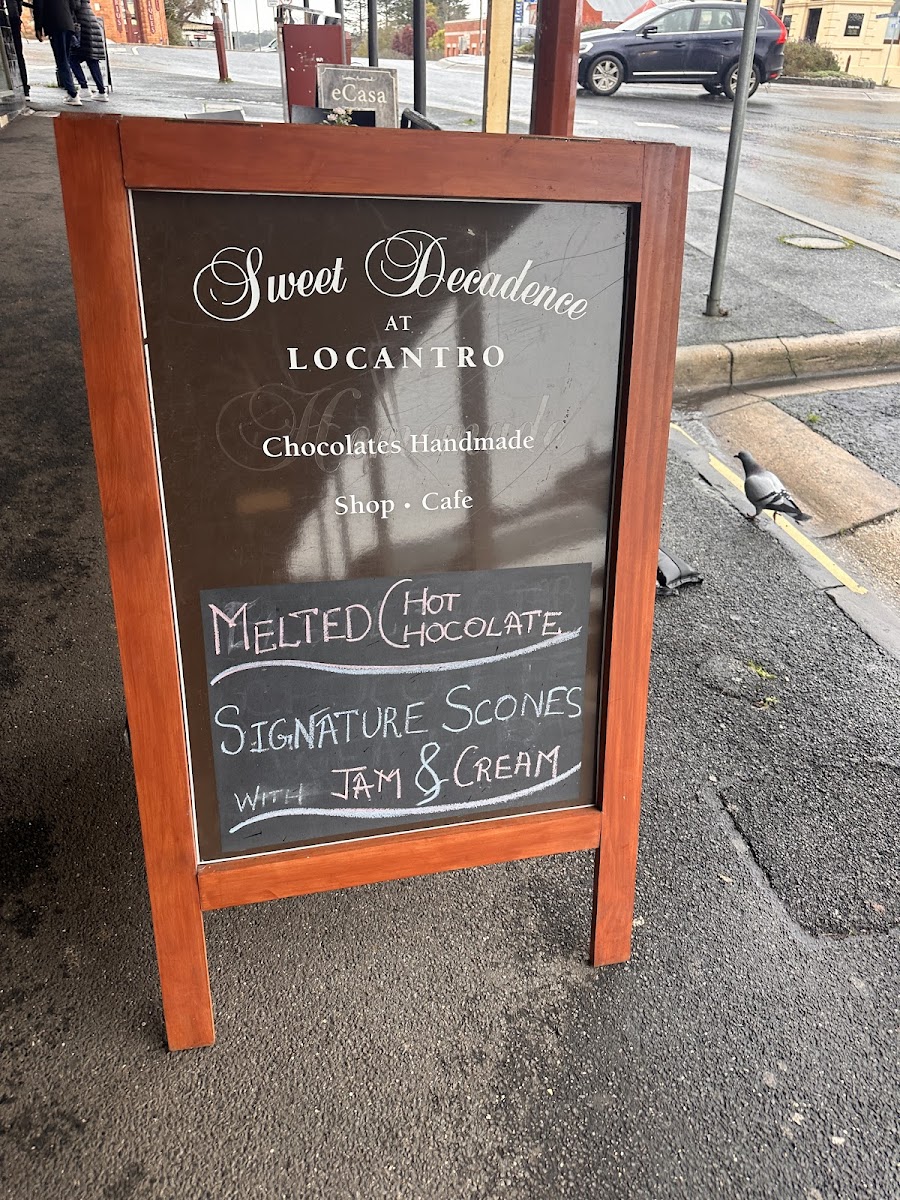 eCasa
Sweet Decadence
AT
LOCANTRO
Chocolates Handmade
Shop • Cafe
MELTED HOT
CHOCOLATE
SIGNATURE SCONES
WITH JAM & CREAM